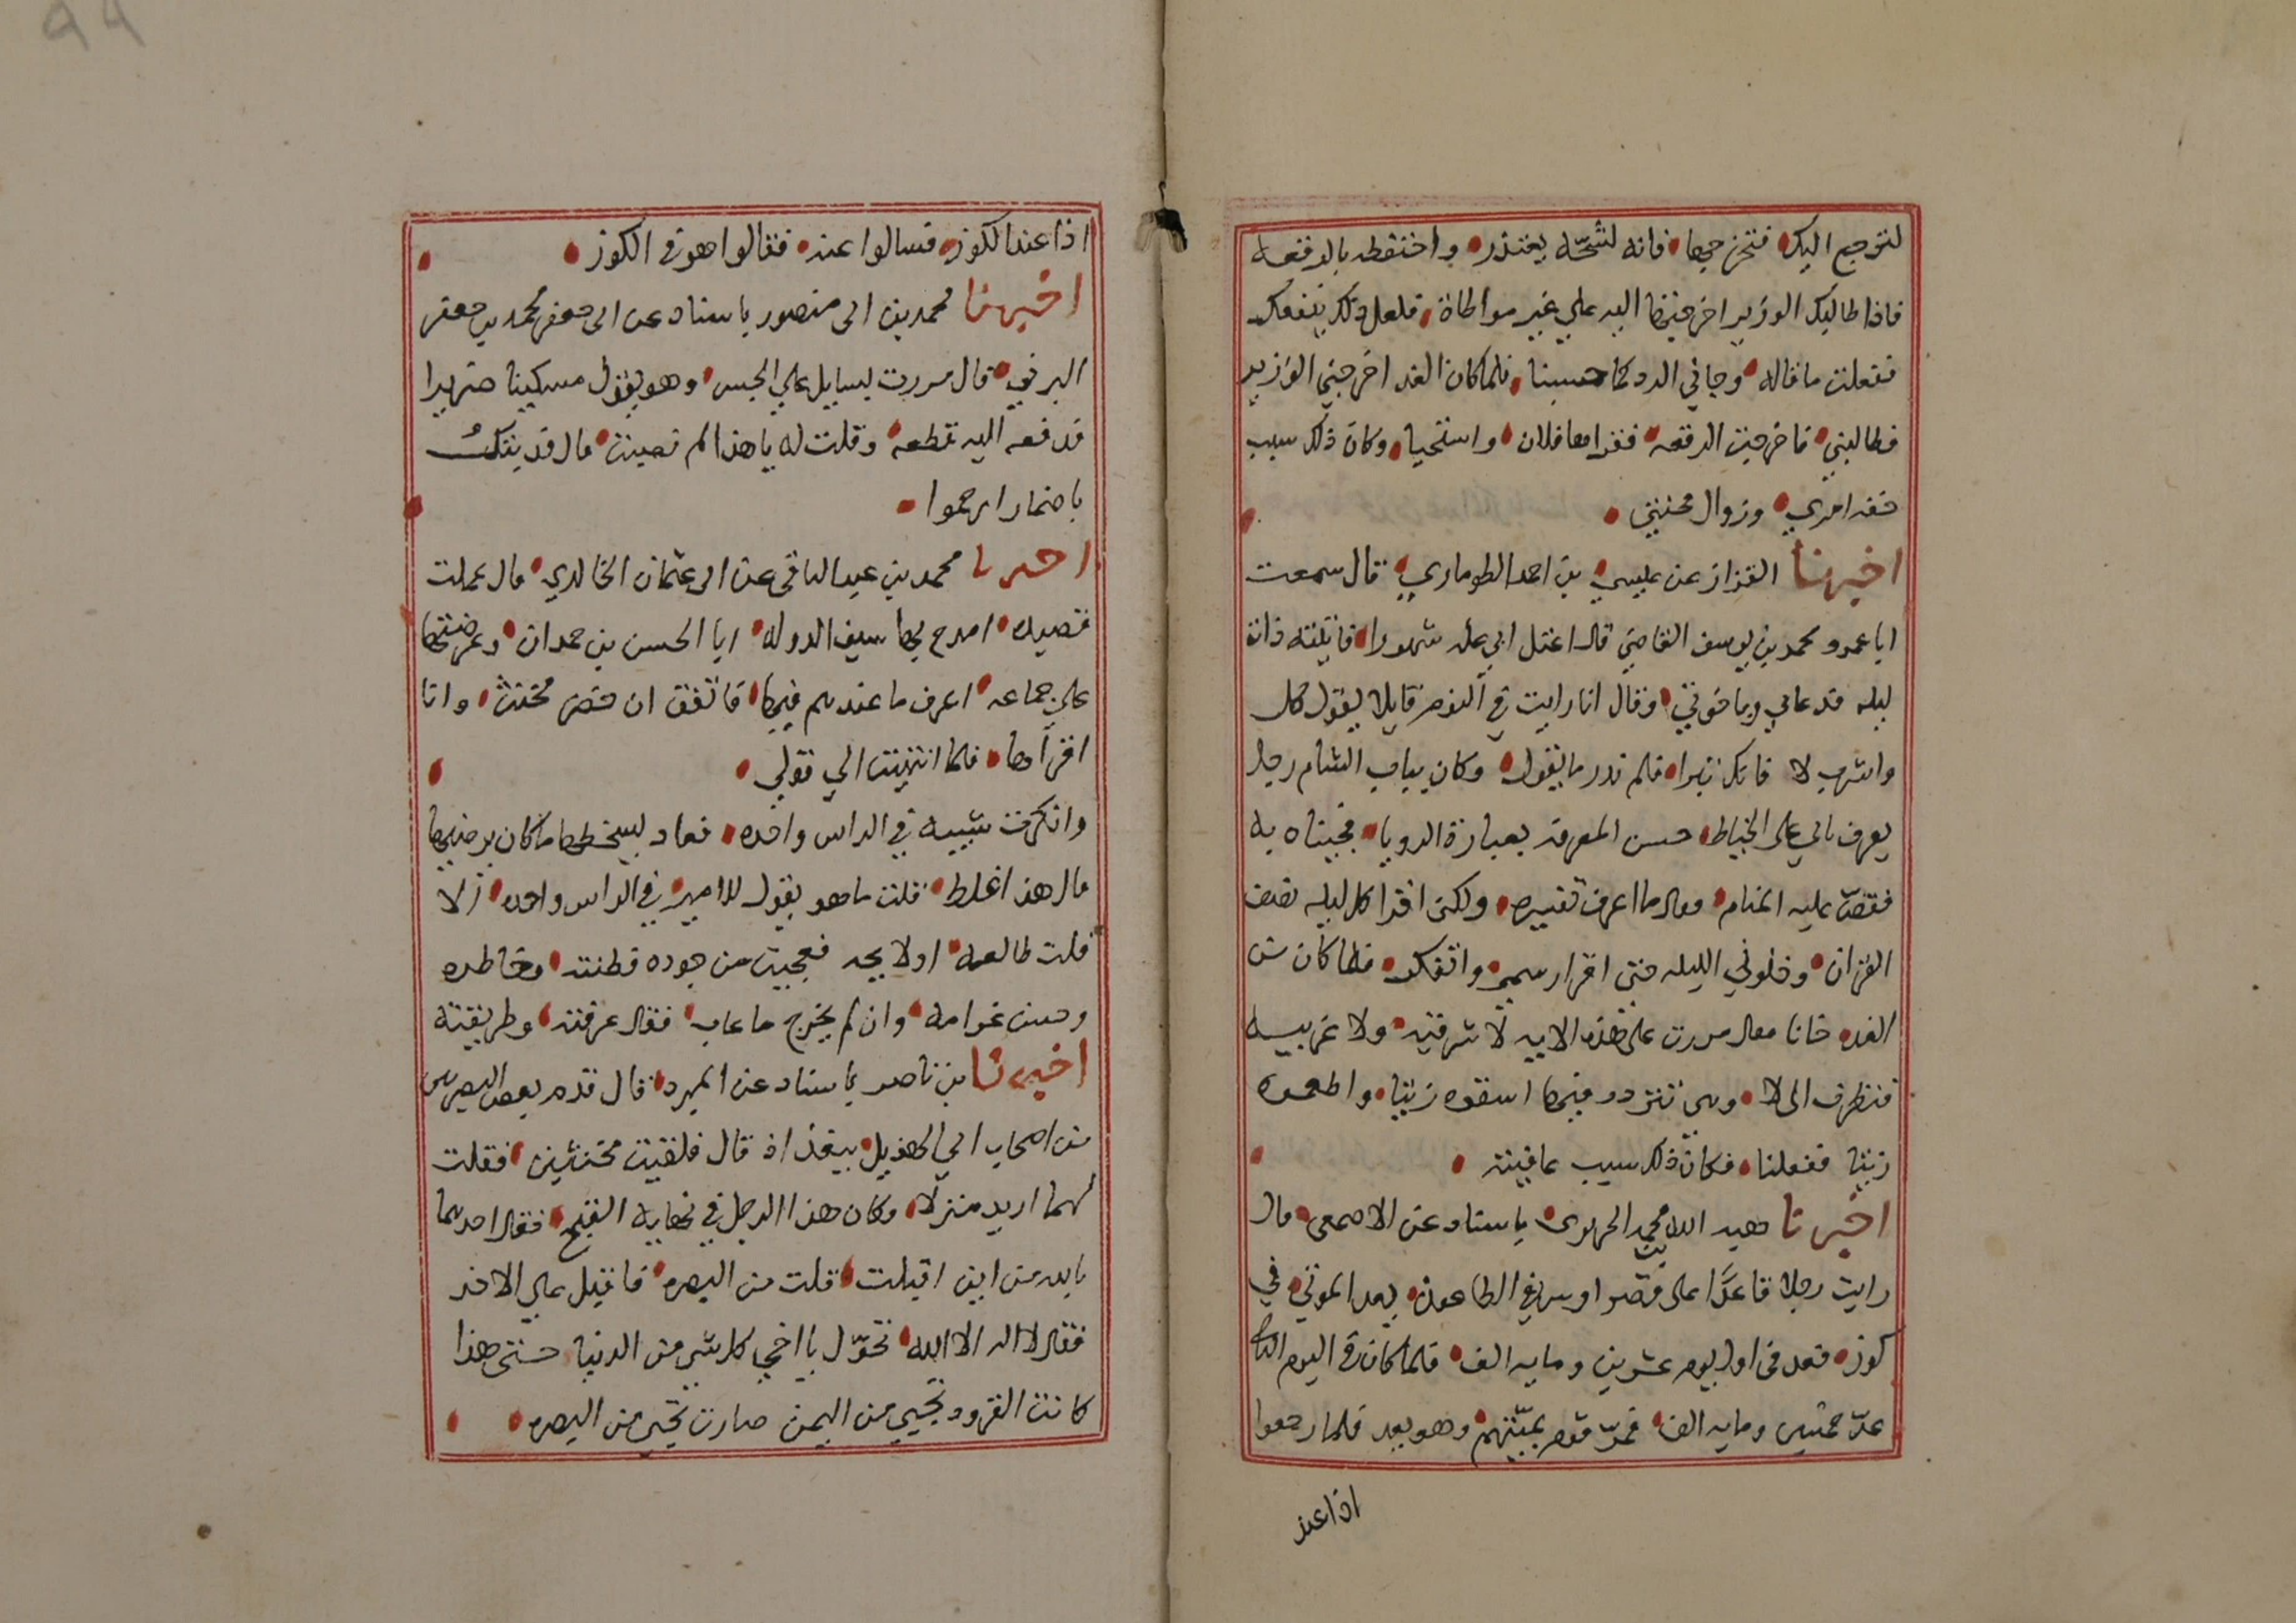 لترجع اليك فتخرجها فانه لشحّه يعتذر واحتفظ بالرقعه
فاذا طالبك الوزير اخرجتها اليه علي غير مواطاة فلعل ذلك ينفعك
ففعلت ما قاله وجاني الرد كما حسبنا فلما كان الغد اخرجني الوزير
فطالبني فاخرجت الرقعه فقراها فلان واستحيا وكان ذلك سبب
خفه امري وزوال محنتي
اخبرنا القزاز عن عيسي بن احمد الطوماري قال سمعت
ابا عمرو محمد بن يوسف القاضي قال اعتل ابي عله شهورا فاتيته ذات
ليله فدعاني وباخوتي وقال انا رايت في النوم قايلا يقول كل
واشرب لا فانك تبرا فلم ندر ما يقول وكان بباب الشام رجل
يعرف بابي علي الخياط حسن المعرفه بعبارة الرويا فجيناه به
فقصّ عليه المنام فقال ما اعرف تفسيره ولكن اقرا كل ليله نصف
القران وخلوني الليله حتى اقرا رسمي واتفكر فلما كان من
الغد جانا فقال مررت على هذه الايه لا شرقيه ولا غربيه
فنظرت الى لا وهي تتردد فيها اسقوه زيتا واطعموه
زيتا ففعلنا فكان ذلك سبب عافيته
اخبرنا هبه الله بن محمد الحريري باسناد عن الاصمعي قال
رايت رجلا قاعدًا على قصر اوس في الطاعون يعد الموتي في
كوز فعد في اول يوم عشرين ومايه الف فلما كان في اليوم الثاني
عدّ خمسين ومايه الف فمرّ قوم بميتهم وهو يعد فلما رجعوا
اذا عند
اذا عند الكوز فسالوا عنه فقالوا هو في الكوز
اخبرنا محمد بن ابي منصور باسناد عن ابي جعفر محمد بن جعفر
البرتي قال مررت بسايل علي الجسر وهو يقول مسكينا ضريرا
فدفعت اليه قطعه وقلت له يا هذا لم نصبت قال فديتك
باضمار ارحموا
اخبرنا محمد بن عبد الباقي عن ابي عثمان الخالدي قال عملت
قصيده امدح بها سيف الدوله ابا الحسن بن حمدان وعرضتها
علي جماعه اعرف ما عندهم فيها فاتفق ان حضر مخنث وانا
اقرأها فلما انتهيت الي قولي
وانكرت شيبه في الراس واحده فعاد يسخطها ما كان يرضيها
قال هذا غلط قلت ما هو يقول للامير في الراس واحده الا
قلت طالعه او لايحه فعجبت من جوده فطنته وخاطره
وحسن غرامه وان لم يخرج ما عاب فقال عرفته وطريقته
اخبرنا بن ناصر باسناد عن المبرد قال قدم بعض البصريين
من اصحاب ابي الهذيل ببغداد قال فلقيت مخنثين فقلت
لهما اريد منزلا وكان هذا الرجل في نهايه القبح فقال احدهما
بالله من اين اقبلت قلت من البصره فاقبل علي الاخر
فقال لا اله الا الله تحوّل يا اخي كل شي من الدنيا حتى هذا
كانت القرود تجيي من اليمن صارت تجي من البصره